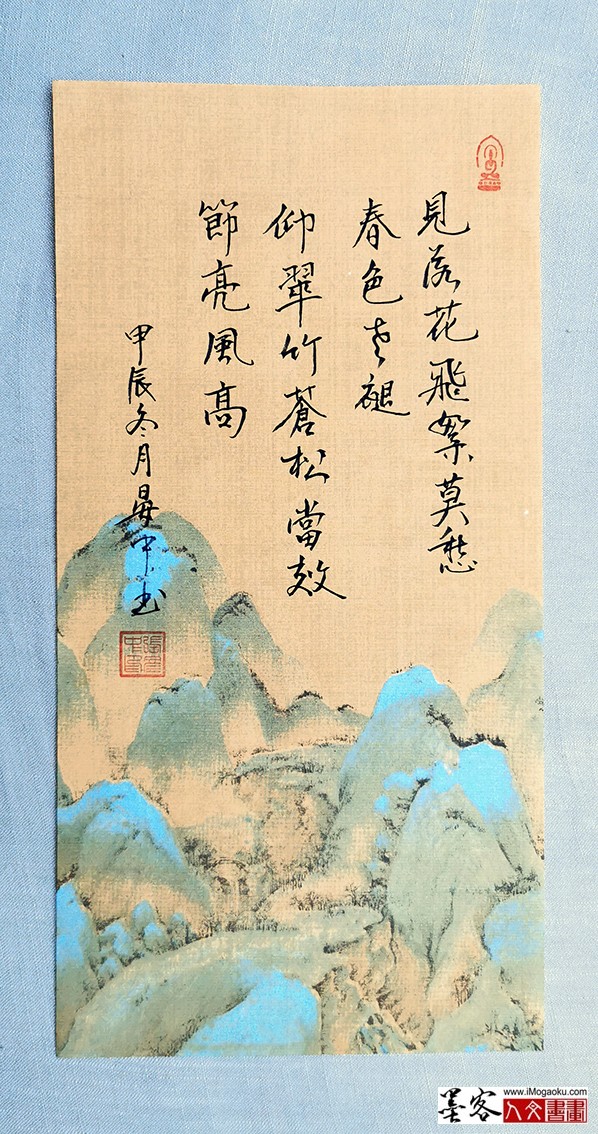 見落花飛絮莫愁
春色老褪
仰翠竹蒼松當效
節亮風高
甲辰冬月中书
墨客
www.iMogaoku.com
人文書畫